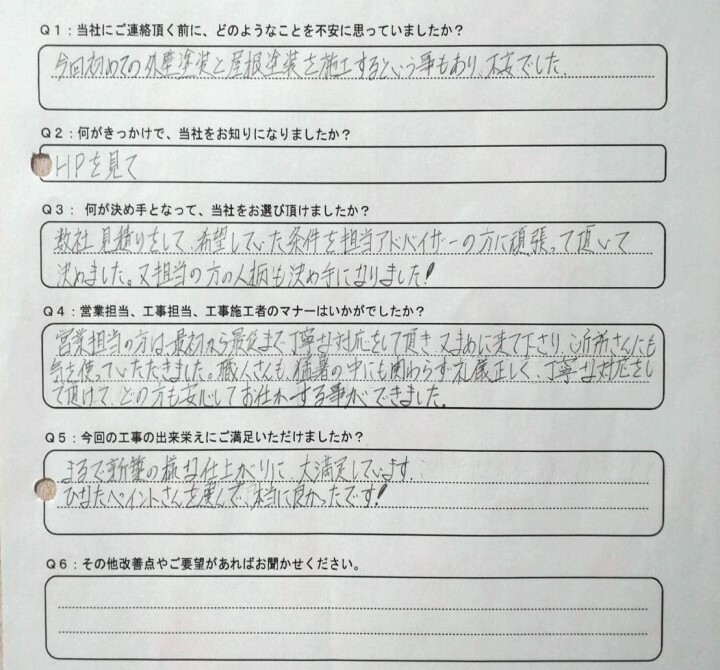 Q1：当社にご連絡頂く前に、どのようなことを不安に思っていましたか？
今回初めての外壁塗装と屋根塗装を施工するという事もあり、不安でした。
Q2：何がきっかけで、当社をお知りになりましたか？
HPを見て
Q3： 何が決め手となって、当社をお選び頂けましたか？
数社見積りをして、希望していた条件を担当アドバイザーの方に頑張って頂いて
決めました。又担当の方の人柄も決め手になりました！
Q4：営業担当、工事担当、工事施工者のマナーはいかがでしたか？
営業担当の方は、最初から最後まで丁寧な対応をして頂き、又まめに来て下さり、ご近所さんにも
気を使っていただきました。職人さんも、猛暑の中にも関わらず、礼儀正しく、丁寧な対応をし
て頂けて、どの方も安心してお任かーする事ができました。
Q5：今回の工事の出来栄えにご満足いただけましたか？
まるで新築の様な仕上がりに、大満足しています。
ひなたペイントさんを選んで、本当に良かったです！
Q6：その他改善点やご要望があればお聞かせください。